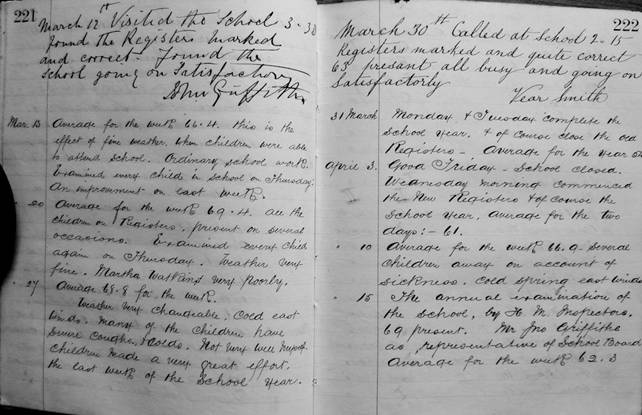 221
March 12th Visited the School 3-30
found the Registers marked
and correct - Found the
School going on Satisfactory
John Griffiths
Mar. 13 Average for the week 66.4. this is the
effect of fine weather. When children were able
to attend school. Ordinary school work.
Examined every child in school on Thursday.
An improvment on last week.
" 20 Average for the week 69.4. all the
children on Registers, present on several
occasions. Examined every child
again on Thursday. Weather very
fine. Martha Watkins very poorly.
" 27 Average 68.8 for the week.
Weather very changeable. Cold east
winds. many of the children have
severe coughs & colds. Not very well myself.
children made a very great effort.
the last week of the School year.
222
March 30th Called at School 2-15
Registers marked and quite correct
63 presant all busy and going on
Satisfactorly
Smith
31 March Monday & Tuesday complete the
School year. & of course close the old
Registers - Average for the year
April 3. Good Friday - School closed.
Wednesday morning commenced
the New Registers & of course the
School Year. Average for the two
days:- 61.
" 10 Average for the week 66.9 - Several
children away on account of
sickness. Cold spring east winds
" 15 The annual examination of
the school, by H. M. Inspectors.
69 present. Mr Jno Griffiths
as representative of School Board
Average for the week 62.3